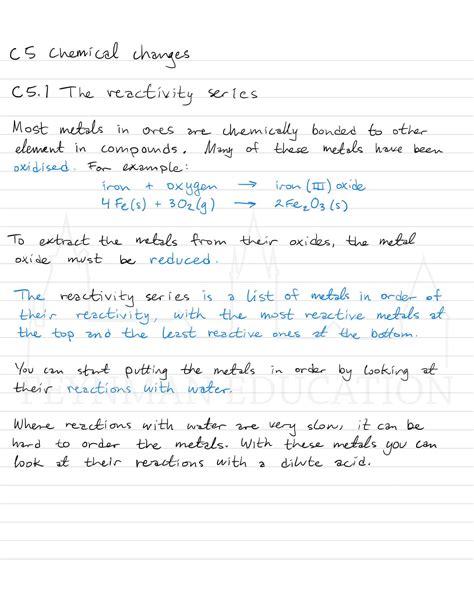 C5 Chemical changes
C5.1 The reactivity series
Most metals in ores are chemically bonded to other
element in compounds. Many of these metals have been
oxidised. For example:
iron + oxygen → iron (III) oxide
4 Fe(s) + 3O₂(g) → 2Fe₂O₃(s)
To extract the metals from their oxides, the metal
oxide must be reduced.
The reactivity series is a list of metals in order of
their reactivity, with the most reactive metals at
the top and the least reactive ones at the bottom.
You can start putting the metals in order by looking at
their reactions with water.
Where reactions with water are very slow, it can be
hard to order the metals. With these metals you can
look at their reactions with a dilute acid.